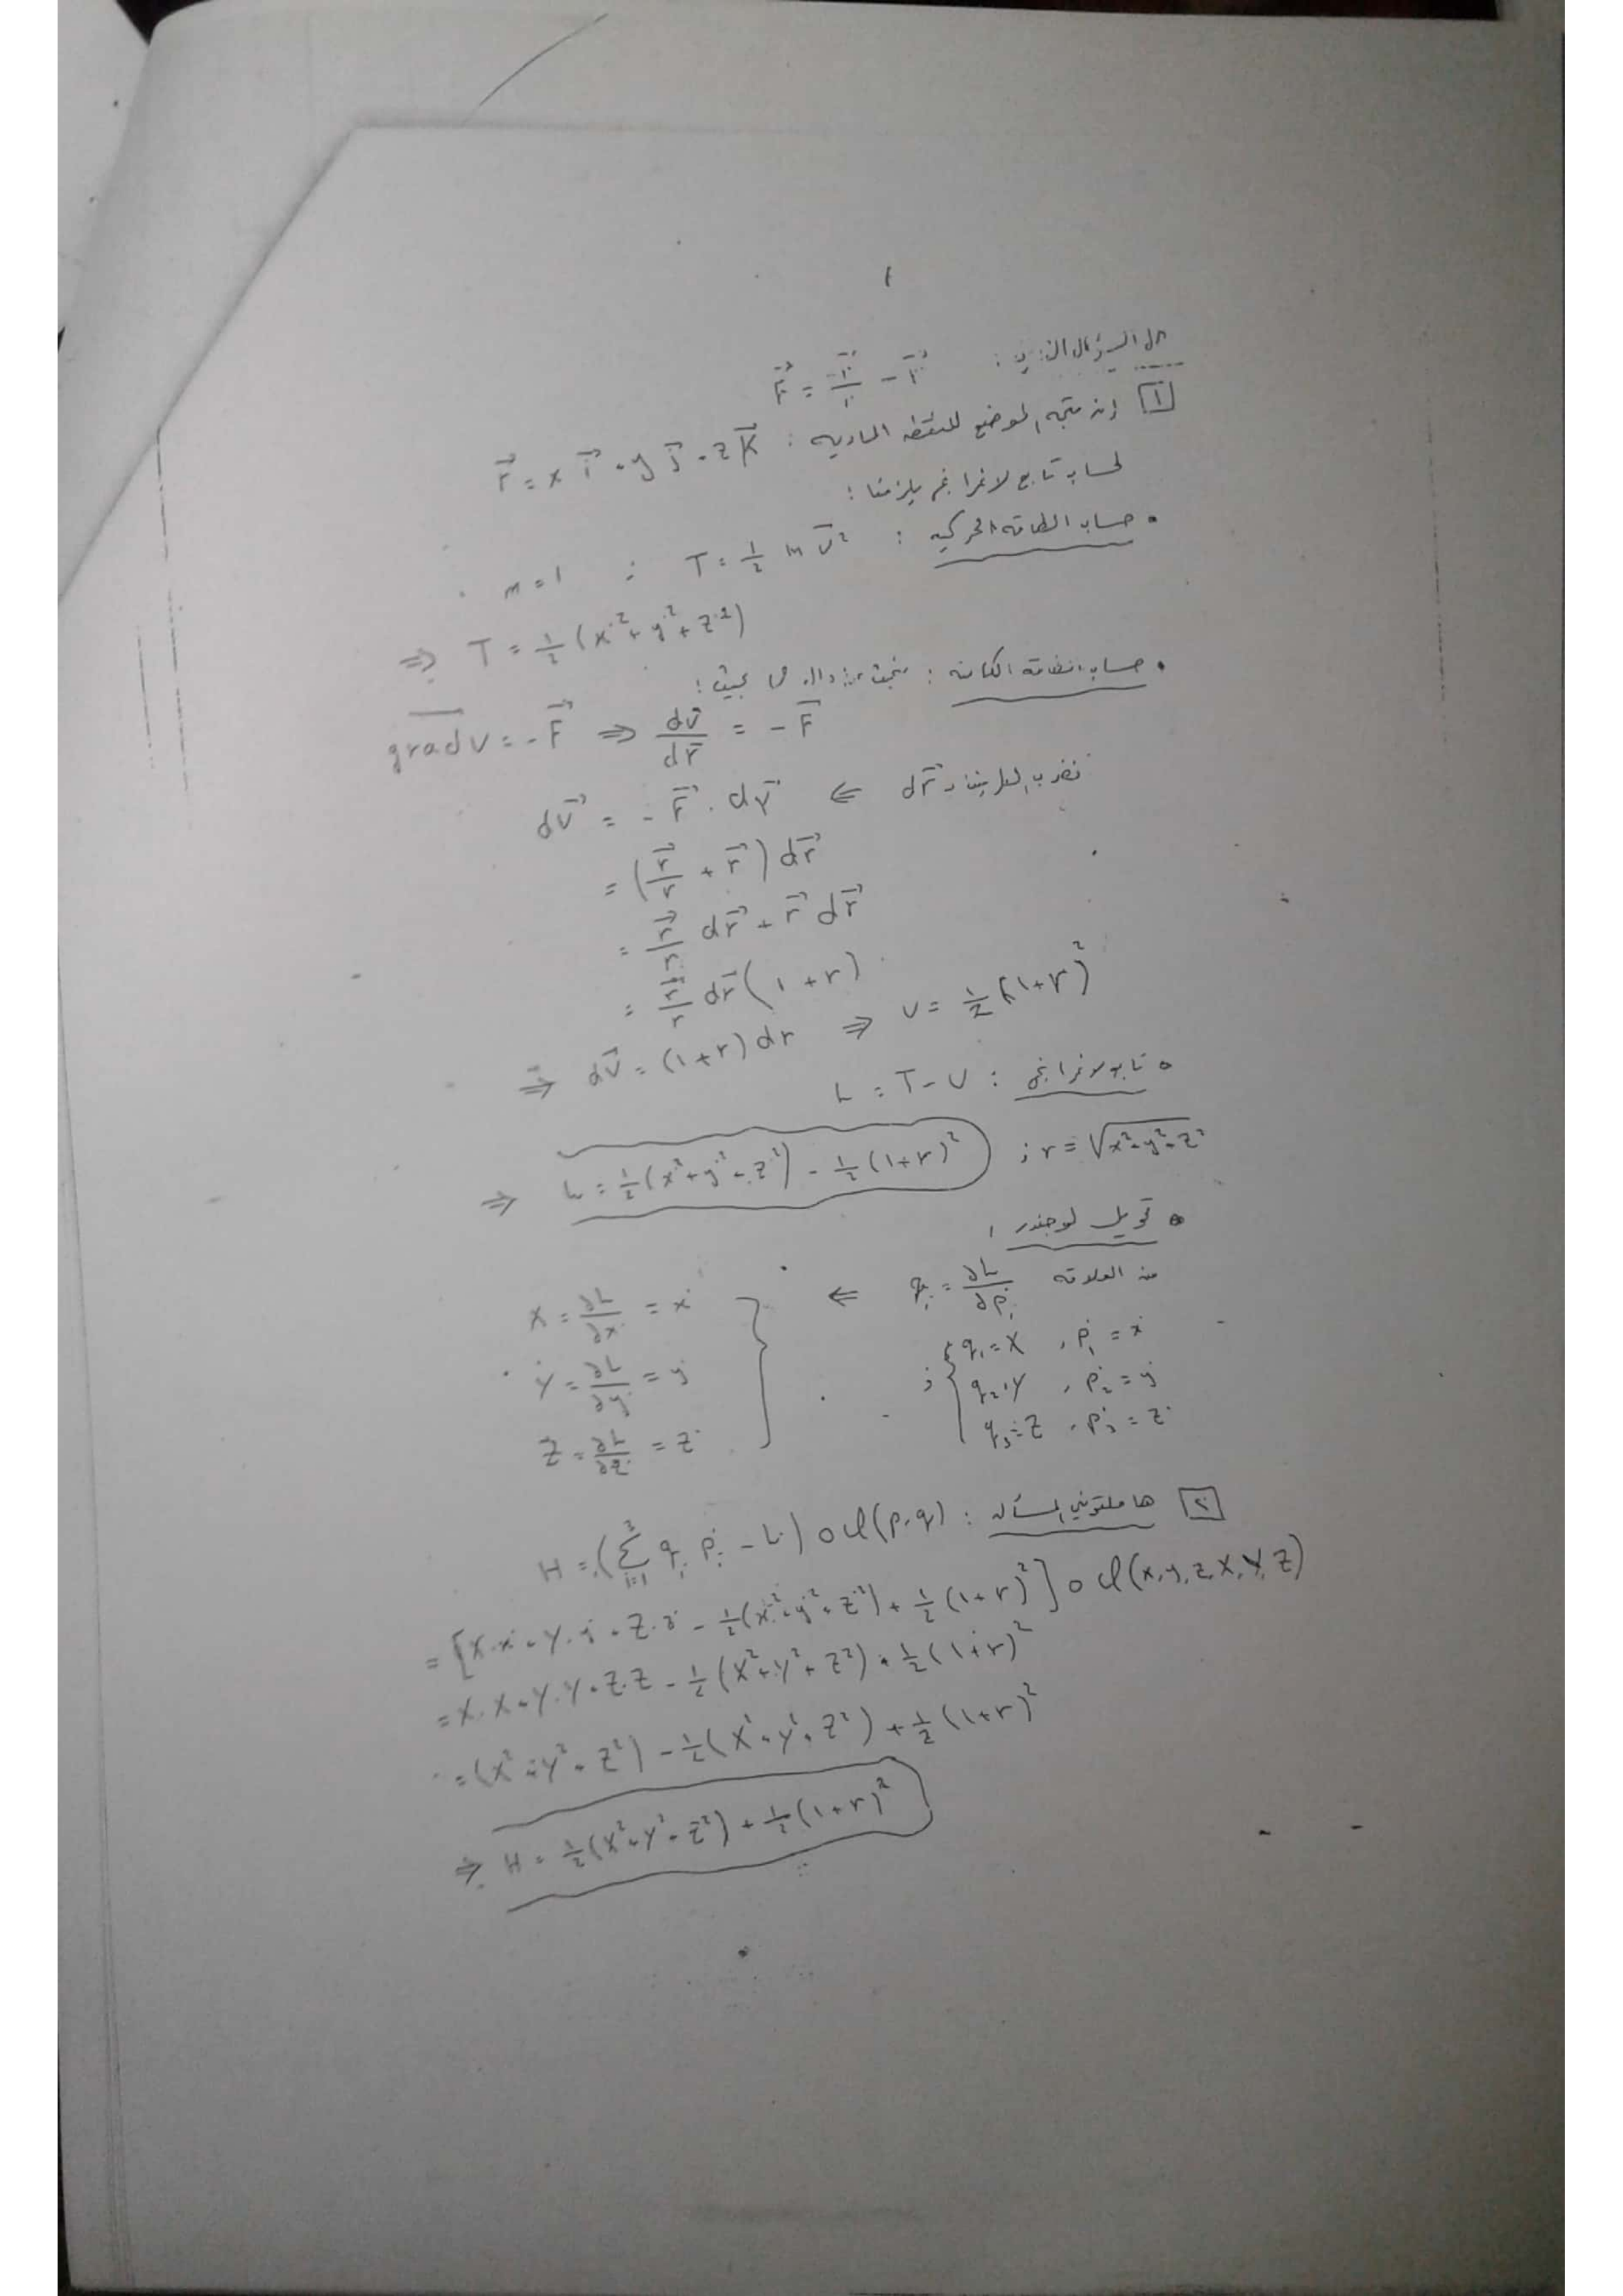 حل السؤال الثاني : F⃗ = r⃗/r - r⃗
[1] إن متجه الموضع للنقطة المادية : r⃗ = x i⃗ + y j⃗ + z k⃗
لحساب تابع لاغرانج يلزمنا :
• حساب الطاقة الحركية : T = 1/2 m v⃗² ; m = 1
⇒ T = 1/2 (x˙² + y˙² + z˙²)
• حساب الطاقة الكامنة : بحيث :
grad V = - F⃗ ⇒ dv⃗/dr⃗ = - F⃗
نضرب الطرفين بـ dr⃗ ⇐ dv⃗ = - F⃗ . dr⃗
= (r⃗/r + r⃗) dr⃗
= r⃗/r dr⃗ + r⃗ dr⃗
= r⃗/r dr⃗ (1 + r)
⇒ dv⃗ = (1 + r) dr ⇒ V = 1/2 (1 + r)²
• تابع لاغرانج : L = T - V
⇒ L = 1/2 (x˙² + y˙² + z˙²) - 1/2 (1 + r)² ; r = √x² + y² + z²
• تحويل لوجندر :
من العلاقة qᵢ = ∂L/∂pᵢ ⇐ X = ∂L/∂x˙ = x˙
q₁ = X , p₁ = x˙
Y = ∂L/∂y˙ = y˙
; q₂ = Y , p₂ = y˙
Z = ∂L/∂z˙ = z˙
q₃ = Z , p₃ = z˙
[2] هاملتوني المسألة : H = (Σ³ᵢ₌₁ qᵢ pᵢ - L) o φ(p, q)
= [X.x˙ + Y.y˙ + Z.z˙ - 1/2 (x˙² + y˙² + z˙²) + 1/2 (1 + r)²] o φ(x, y, z, X, Y, Z)
= X.X + Y.Y + Z.Z - 1/2 (X² + Y² + Z²) + 1/2 (1 + r)²
= (X² + Y² + Z²) - 1/2 (X² + Y² + Z²) + 1/2 (1 + r)²
⇒ H = 1/2 (X² + Y² + Z²) + 1/2 (1 + r)²